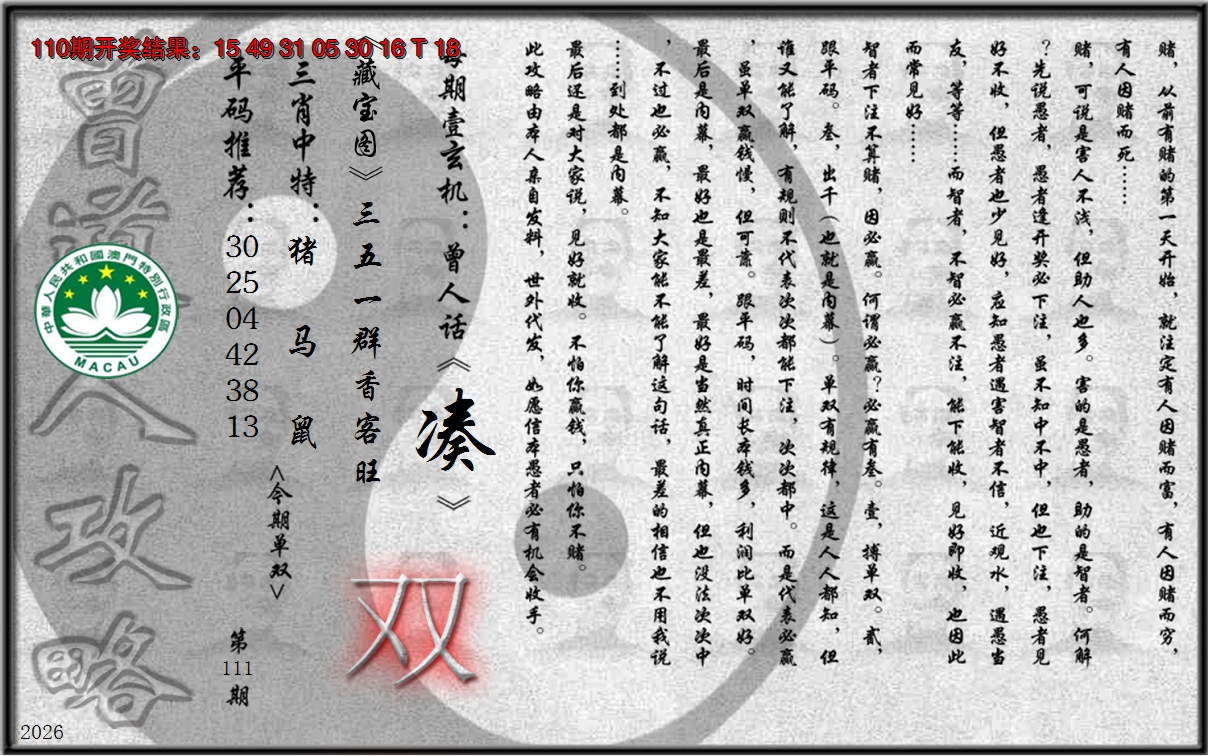 110期开奖结果：15 49 31 05 30 16 T 18
赌，从前有赌的第一天开始，就注定有人因赌而富，有人因赌而穷，
有人因赌而死……
赌，可说是害人不浅，但助人也多。害的是愚者，助的是智者。何解
？先说愚者，愚者逢开奖必下注，虽不知中不中，但也下注，愚者见
好不收，但愚者也少见好，应知愚者遇害智者不信，近观水，遇愚当
友，等等……而智者，不智必赢不注，能下能收，见好即收，也因此
而常见好……
智者下注不算赌，因必赢。何谓必赢？必赢有叁。壹，搏单双。贰，
跟平码。叁，出千（也就是内幕）。单双有规律，这是人人都知，但
谁又能了解，有规则不代表次次都能下注，次次都中。而是代表必赢
，虽单双赢钱慢，但可靠。跟平码，时间长本钱多，利润比单双好。
最后是内幕，最好也是最差，最好是当然真正内幕，但也没法次次中
，不过也必赢，不知大家能不能了解这句话，最差的相信也不用我说
……到处都是内幕。
最后还是对大家说，见好就收。不怕你赢钱，只怕你不赌。
此攻略由本人亲自发料，世外代发，如愿信本愚者必有机会收手。
每期壹玄机：曾人话《凑》
《藏宝图》三五一群香客旺
双
三肖中特：猪 马 鼠
<今期单双>
平码推荐：30 25 04 42 38 13
第111期
曾道人攻略
中華人民共和國澳門特別行政區
MACAU
2026